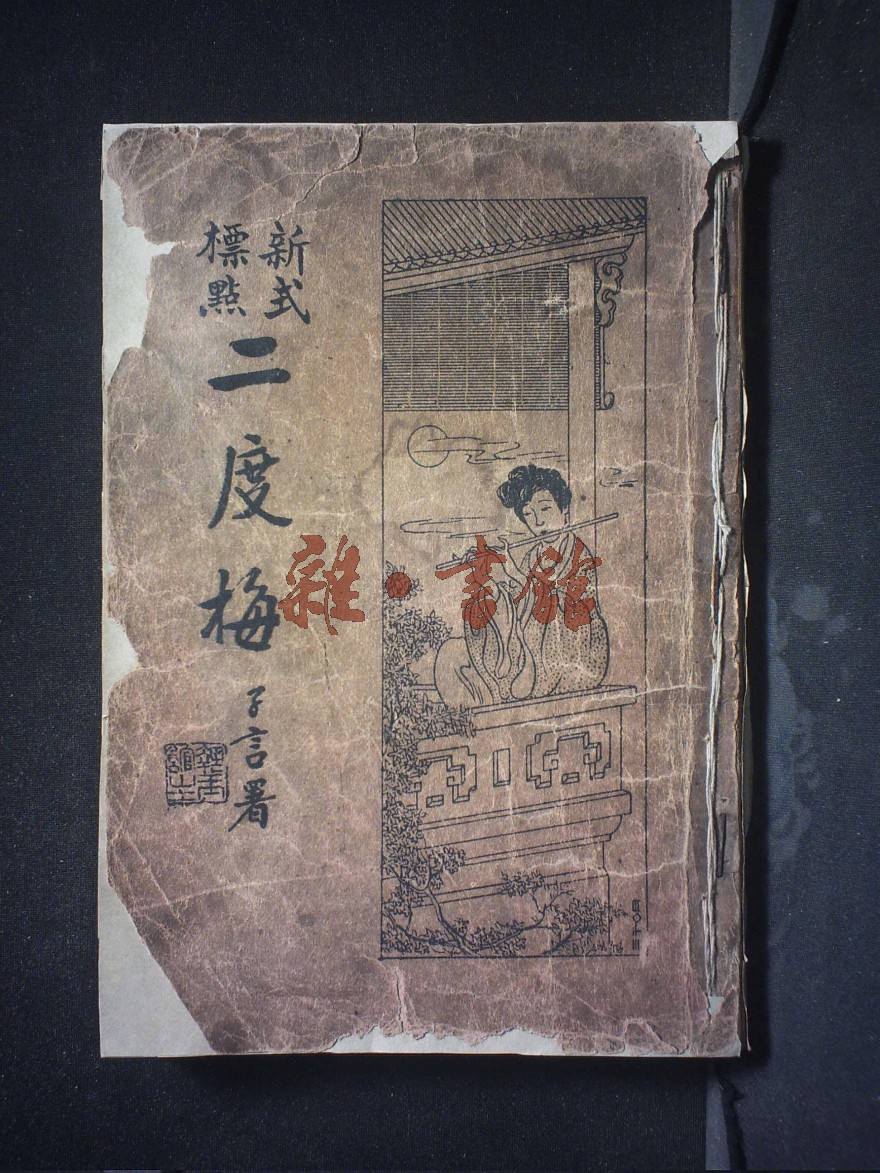 新式
標點
二度梅
子言署
雜·書館